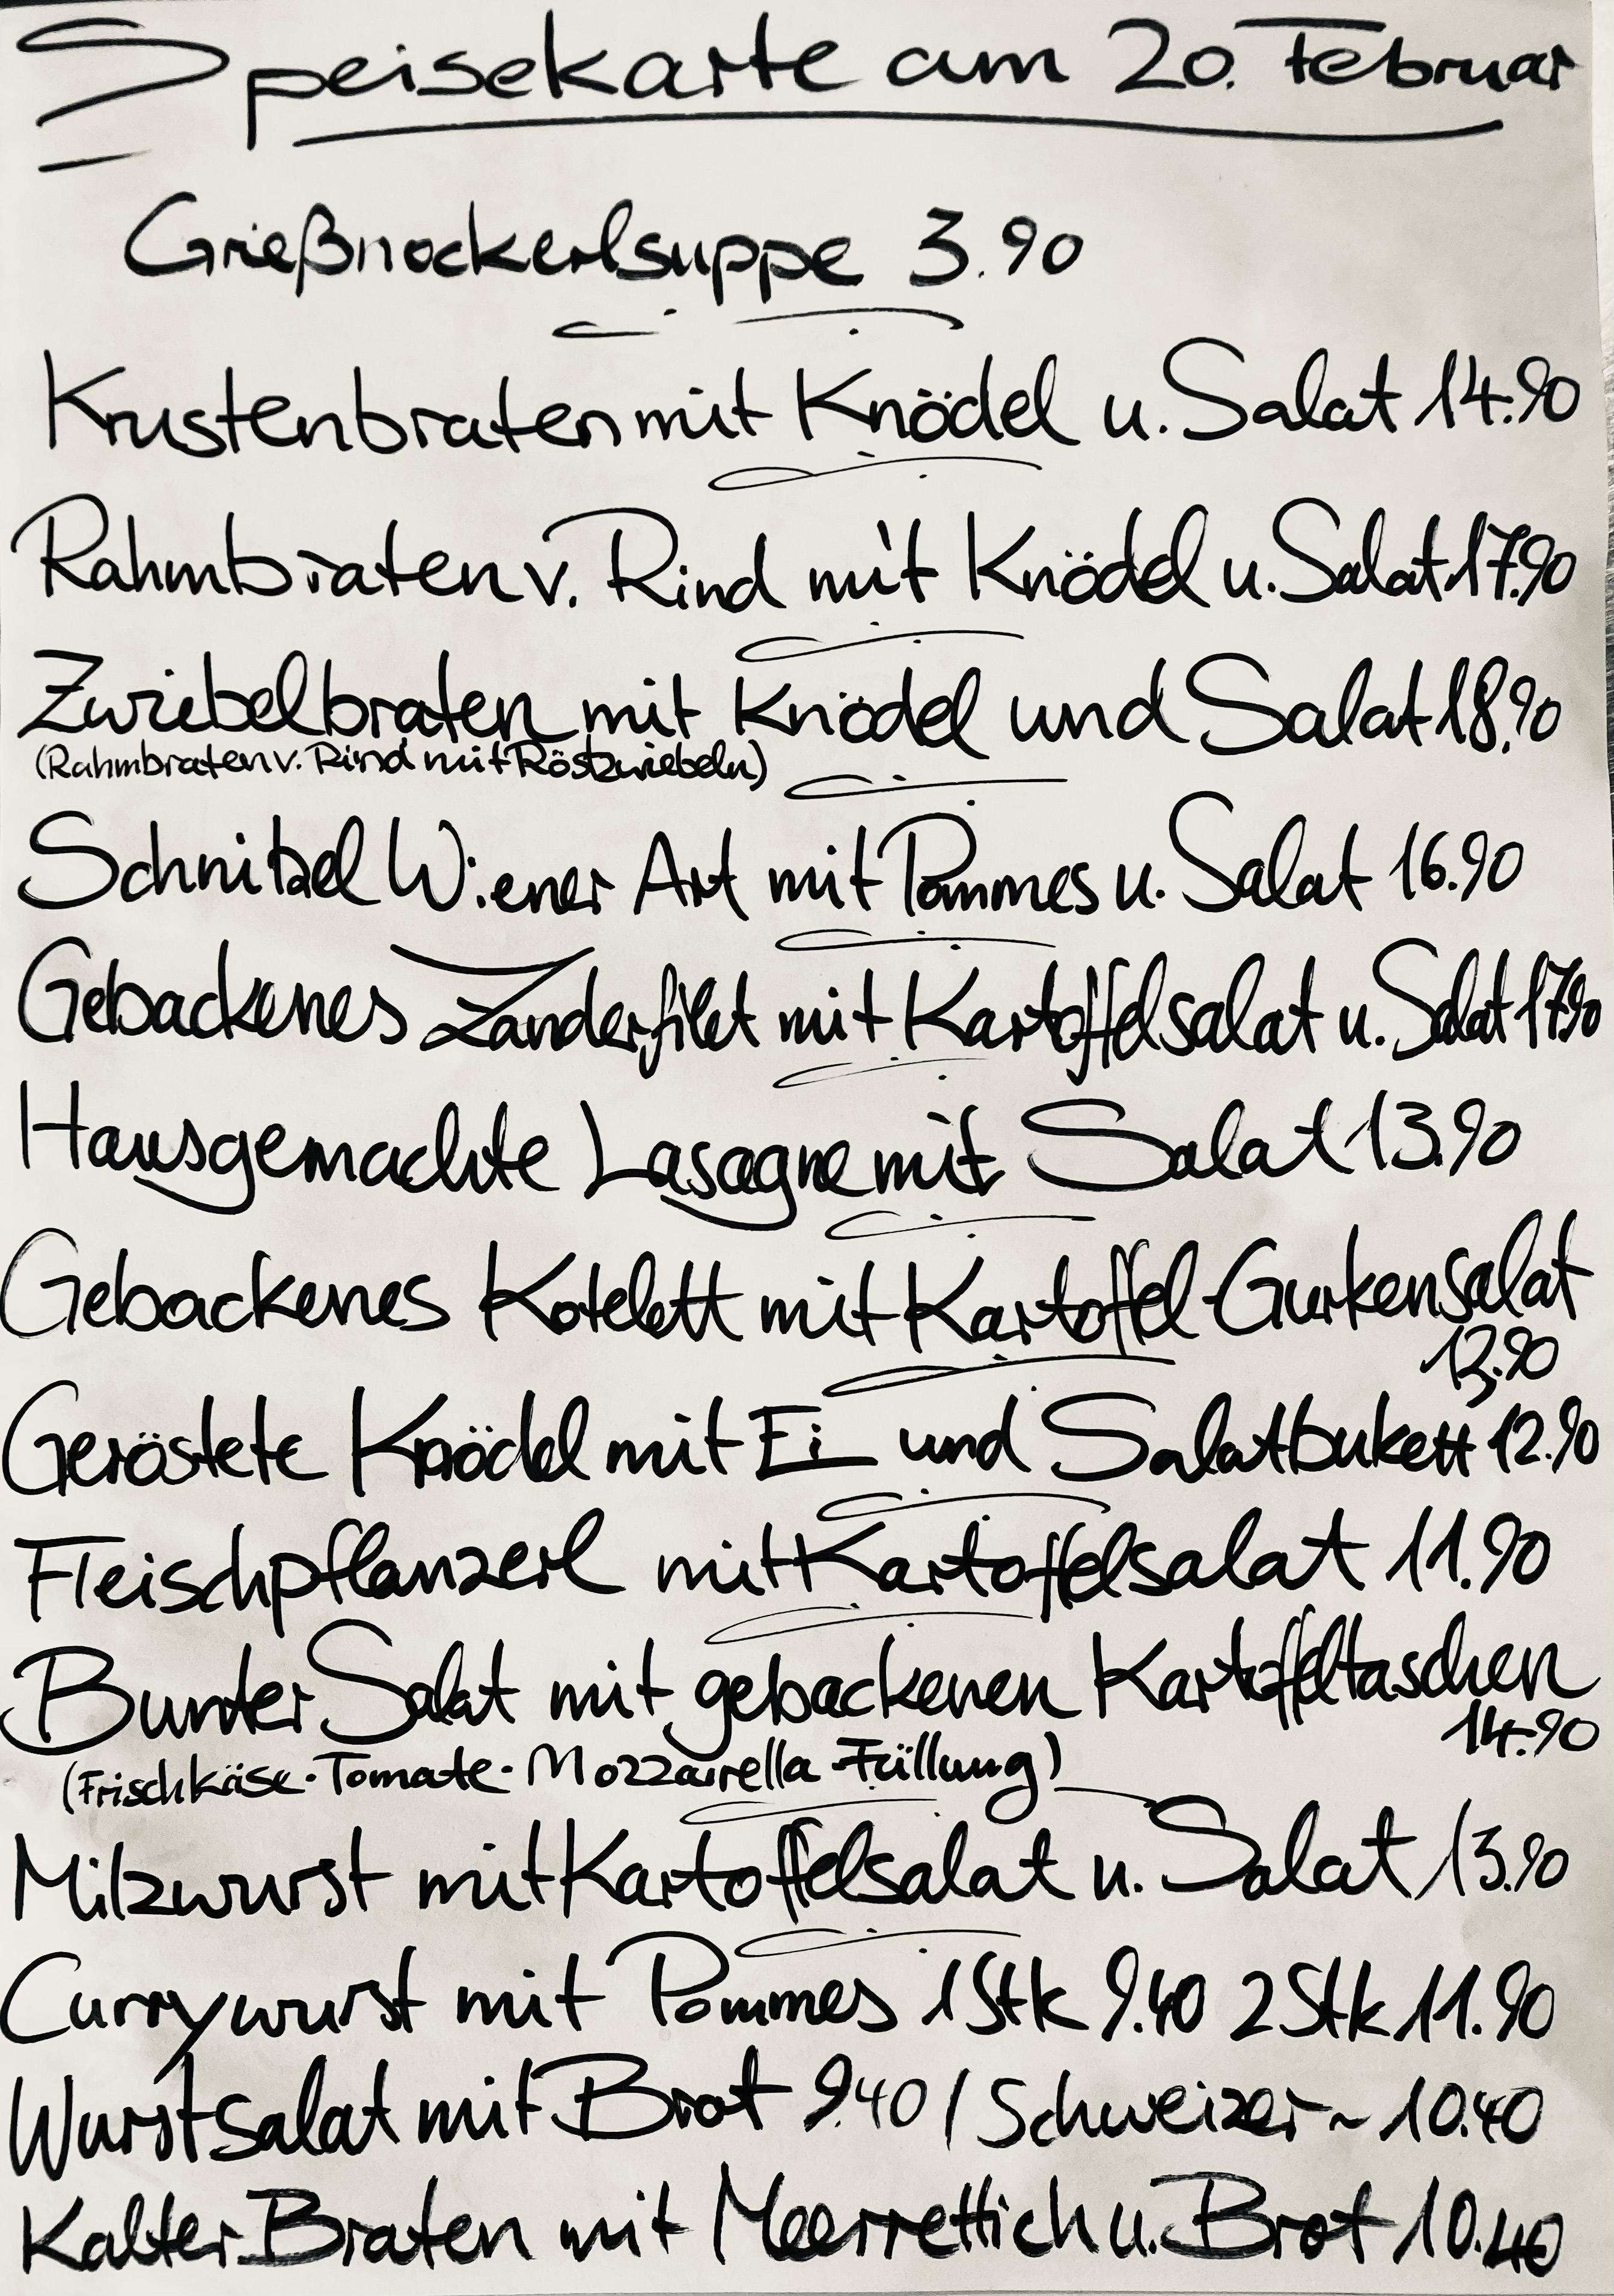 Speisekarte am 20. Februar
Grießnockerlsuppe 3.90
Krustenbraten mit Knödel u. Salat 14.90
Rahmbraten v. Rind mit Knödel u. Salat 17.90
Zwiebelbraten mit Knödel und Salat 18.90
(Rahmbraten v. Rind mit Röstzwiebeln)
Schnitzel Wiener Art mit Pommes u. Salat 16.90
Gebackenes Zanderfilet mit Kartoffelsalat u. Salat 17.90
Hausgemachte Lasagne mit Salat 13.90
Gebackenes Kotelett mit Kartoffel-Gurkensalat
13.90
Geröstete Knödel mit Ei und Salatbukett 12.90
Fleischpflanzerl mit Kartoffelsalat 11.90
Bunter Salat mit gebackenen Kartoffeltaschen
14.90
(Frischkäse-Tomate-Mozzarella-Füllung)
Milzwurst mit Kartoffelsalat u. Salat 13.90
Currywurst mit Pommes 1 Stk 9.40 2 Stk 11.90
Wurstsalat mit Brot 9.40 / Schweizer ~ 10.40
Kalter Braten mit Meerrettich u. Brot 10.40